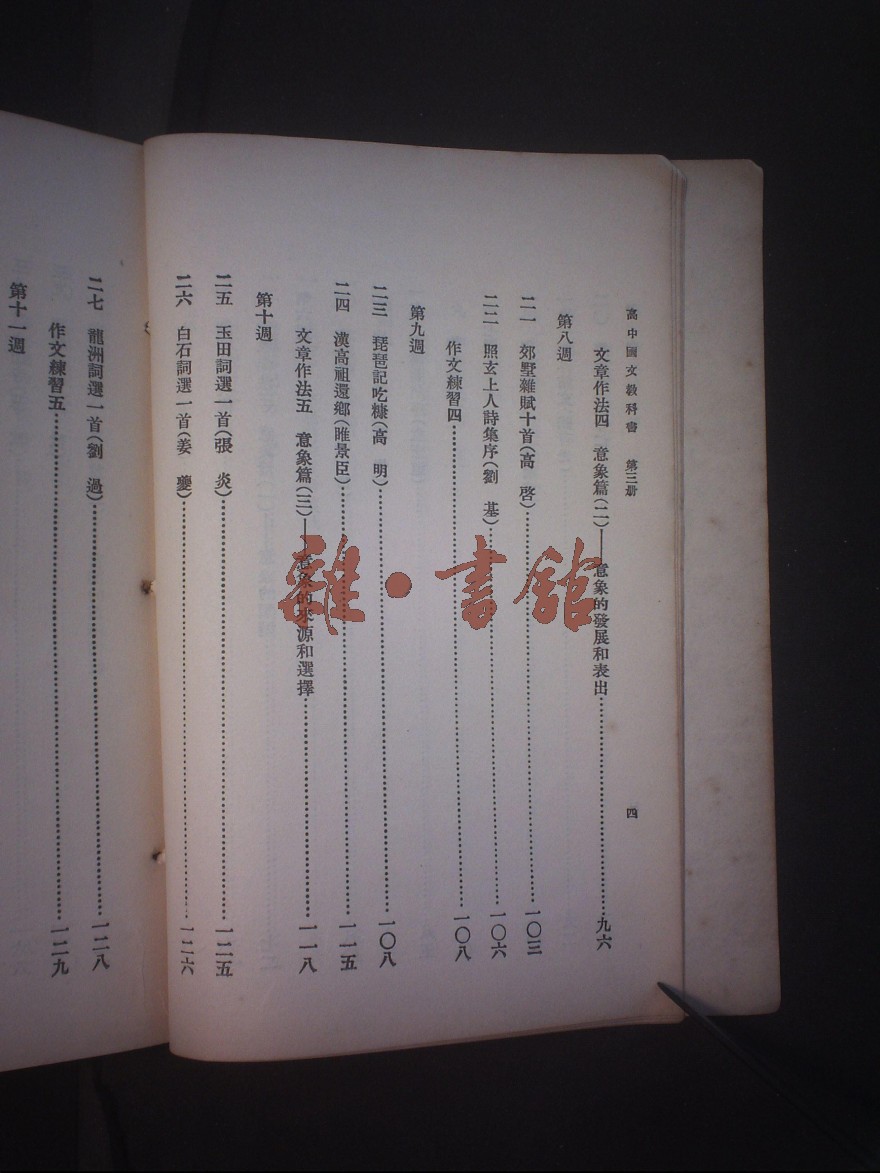 高中國文教科書 第三册 四
文章作法四 意象篇(二)——意象的發展和表出 九六
第八週
二一 郊墅雜賦十首(高 啓) 一〇三
二二 照玄上人詩集序(劉 基) 一〇六
作文練習四 一〇八
第九週
二三 琵琶記吃糠(高 明) 一〇八
二四 漢高祖還鄉(睢景臣) 一一五
文章作法五 意象篇(三)——意象的來源和選擇 一一八
第十週
二五 玉田詞選一首(張 炎) 一二五
二六 白石詞選一首(姜 夔) 一二六
二七 龍洲詞選一首(劉 過) 一二八
作文練習五 一二九
第十一週
雜·書館